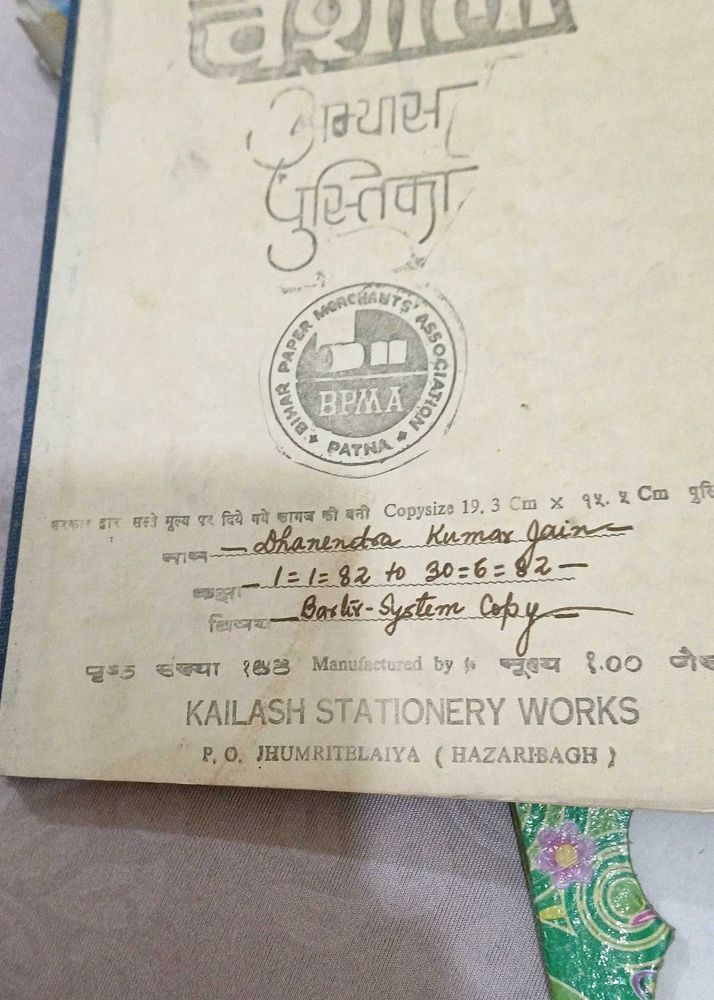 वैशाली
अभ्यास
पुस्तिका
BIHAR PAPER MERCHANTS' ASSOCIATION
BPMA
PATNA
सरकार द्वारा सस्ते मूल्य पर दिये गये कागज की बनी Copysize 19. 3 Cm × १५. ५ Cm
नाम Dhanendra Kumar Jain
कक्षा 1=1=82 to 30=6=82
विषय System Copy
पृष्ठ संख्या Manufactured by मूल्य १.००
KAILASH STATIONERY WORKS
P. O. JHUMRITELAIYA ( HAZARIBAGH )